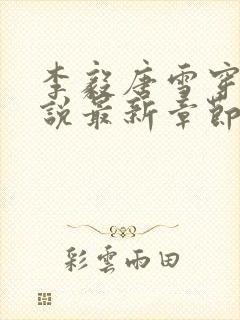 李毅唐雪穿
說最新章節
彩雲雨田